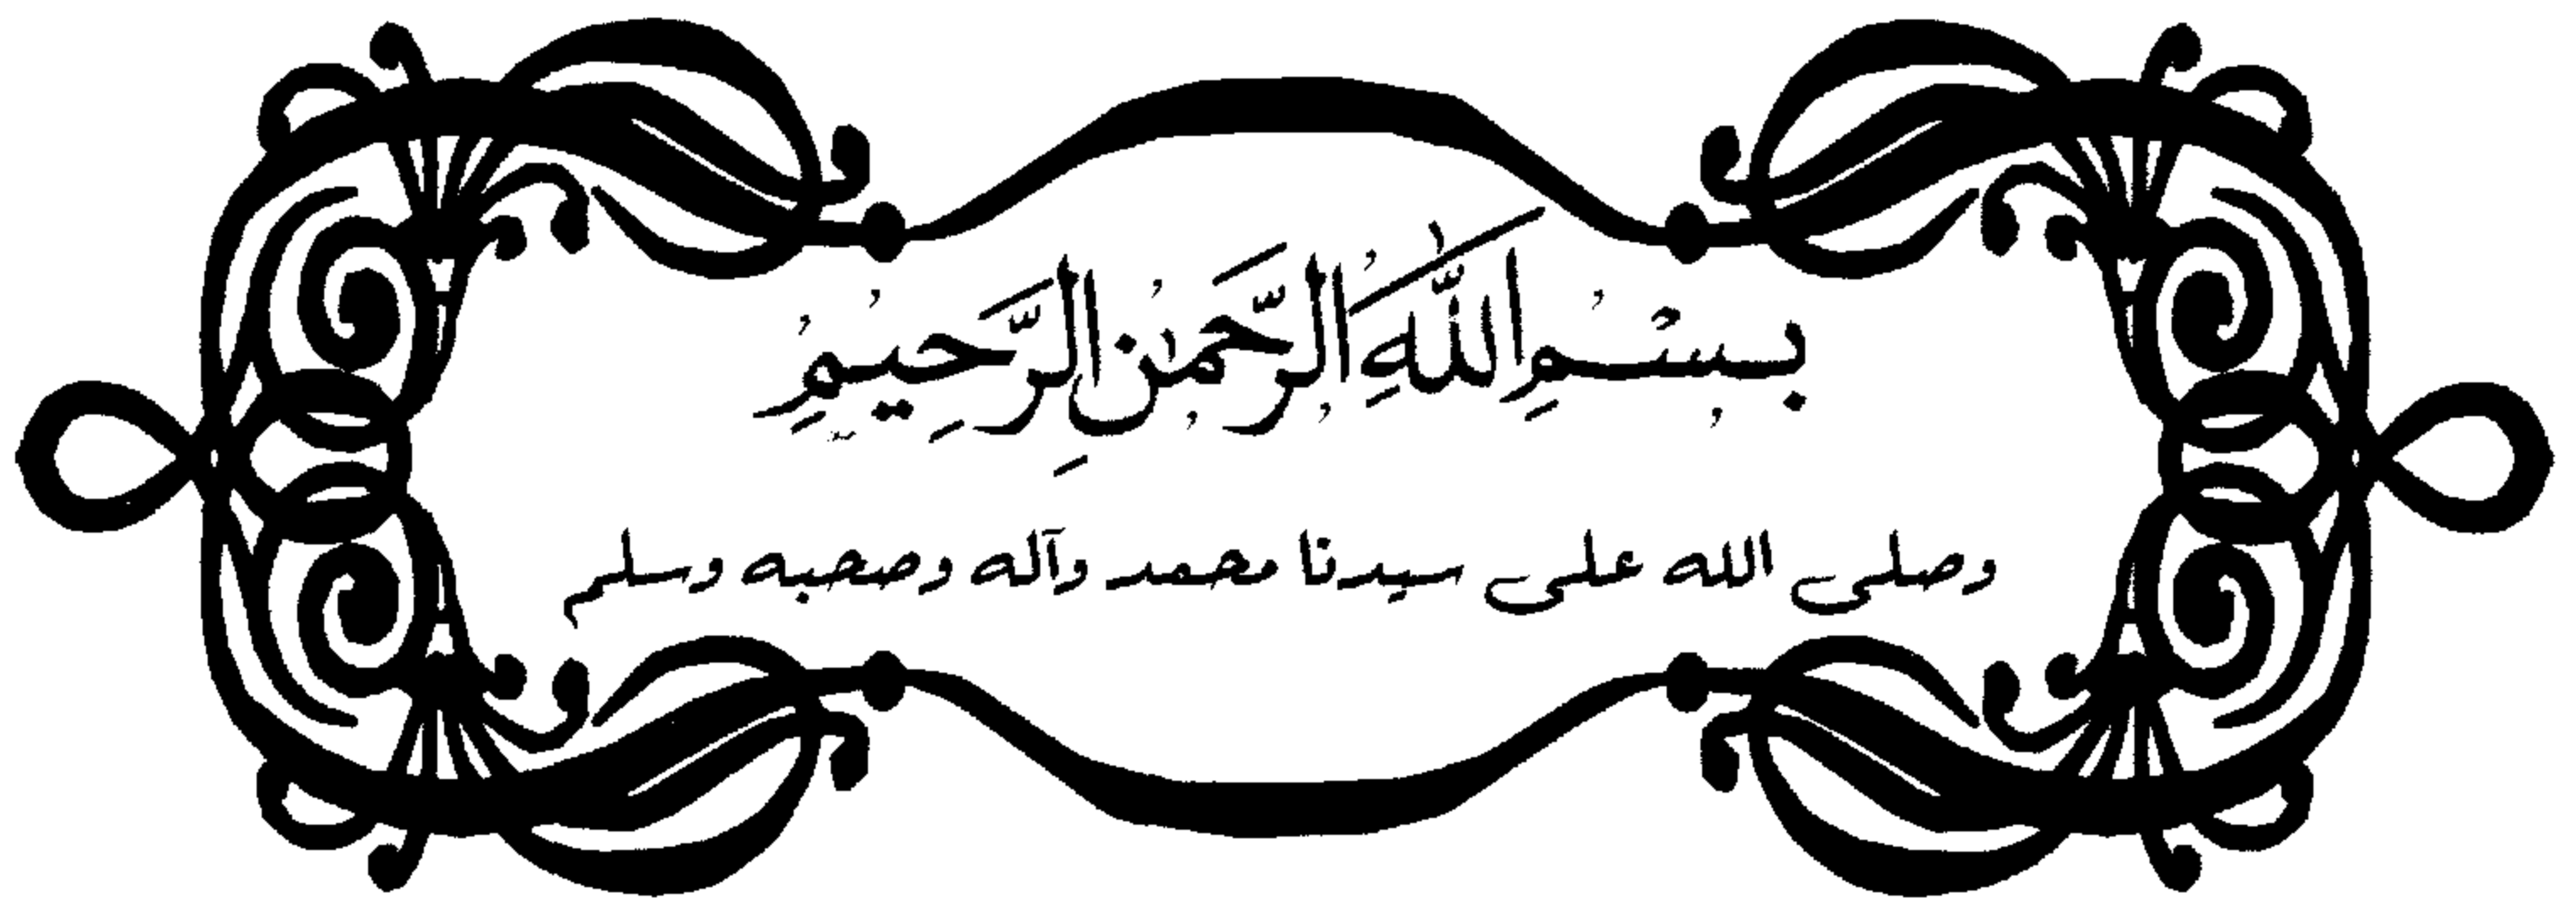 بِسْمِ اللَّهِ الرَّحْمٰنِ الرَّحِيمِ
وصلى الله على سيدنا محمد وآله وصحبه وسلم